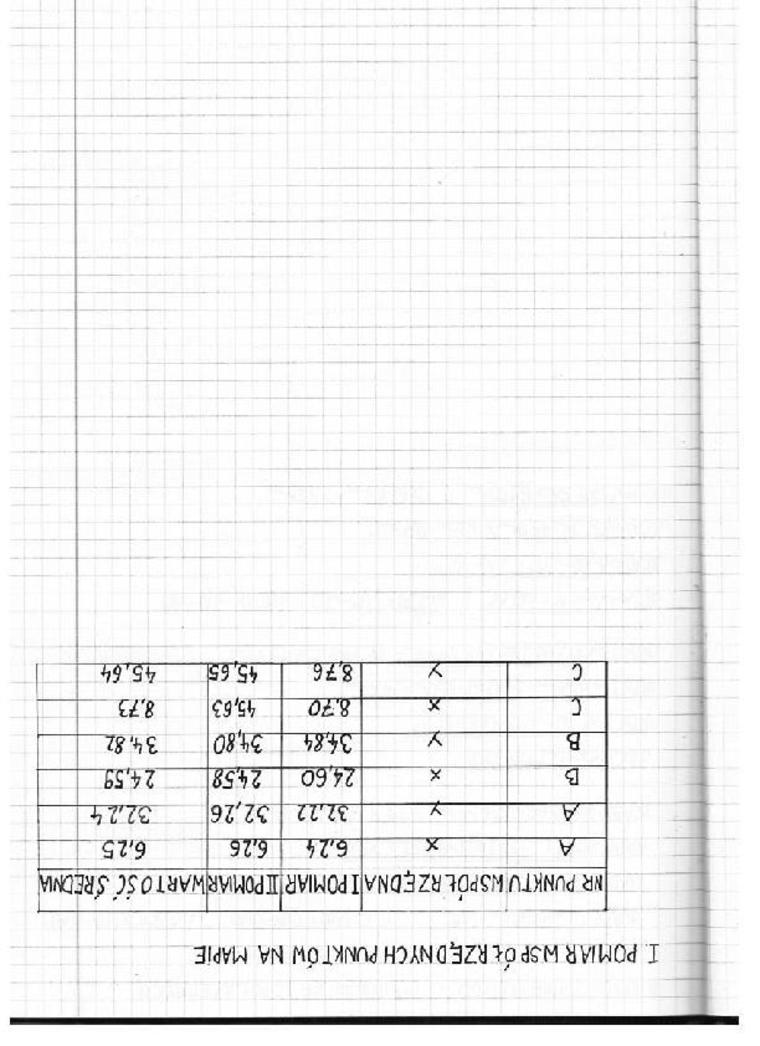 I. POMIAR WSPÓŁRZĘDNYCH PUNKTÓW NA MAPIE
NR PUNKTU WSPÓŁRZĘDNA I POMIAR II POMIAR WARTOŚĆ ŚREDNIA
A x 6,24 6,26 6,25
A y 32,22 32,26 32,24
B x 24,60 24,58 24,59
B y 34,84 34,80 34,82
C x 8,70 45,63 8,73
C y 8,76 45,65 45,64